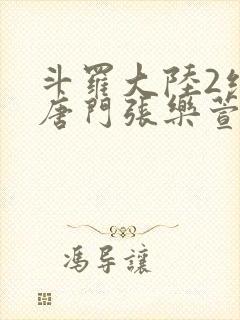 斗羅大陸2
唐門張樂萱
馮导讓